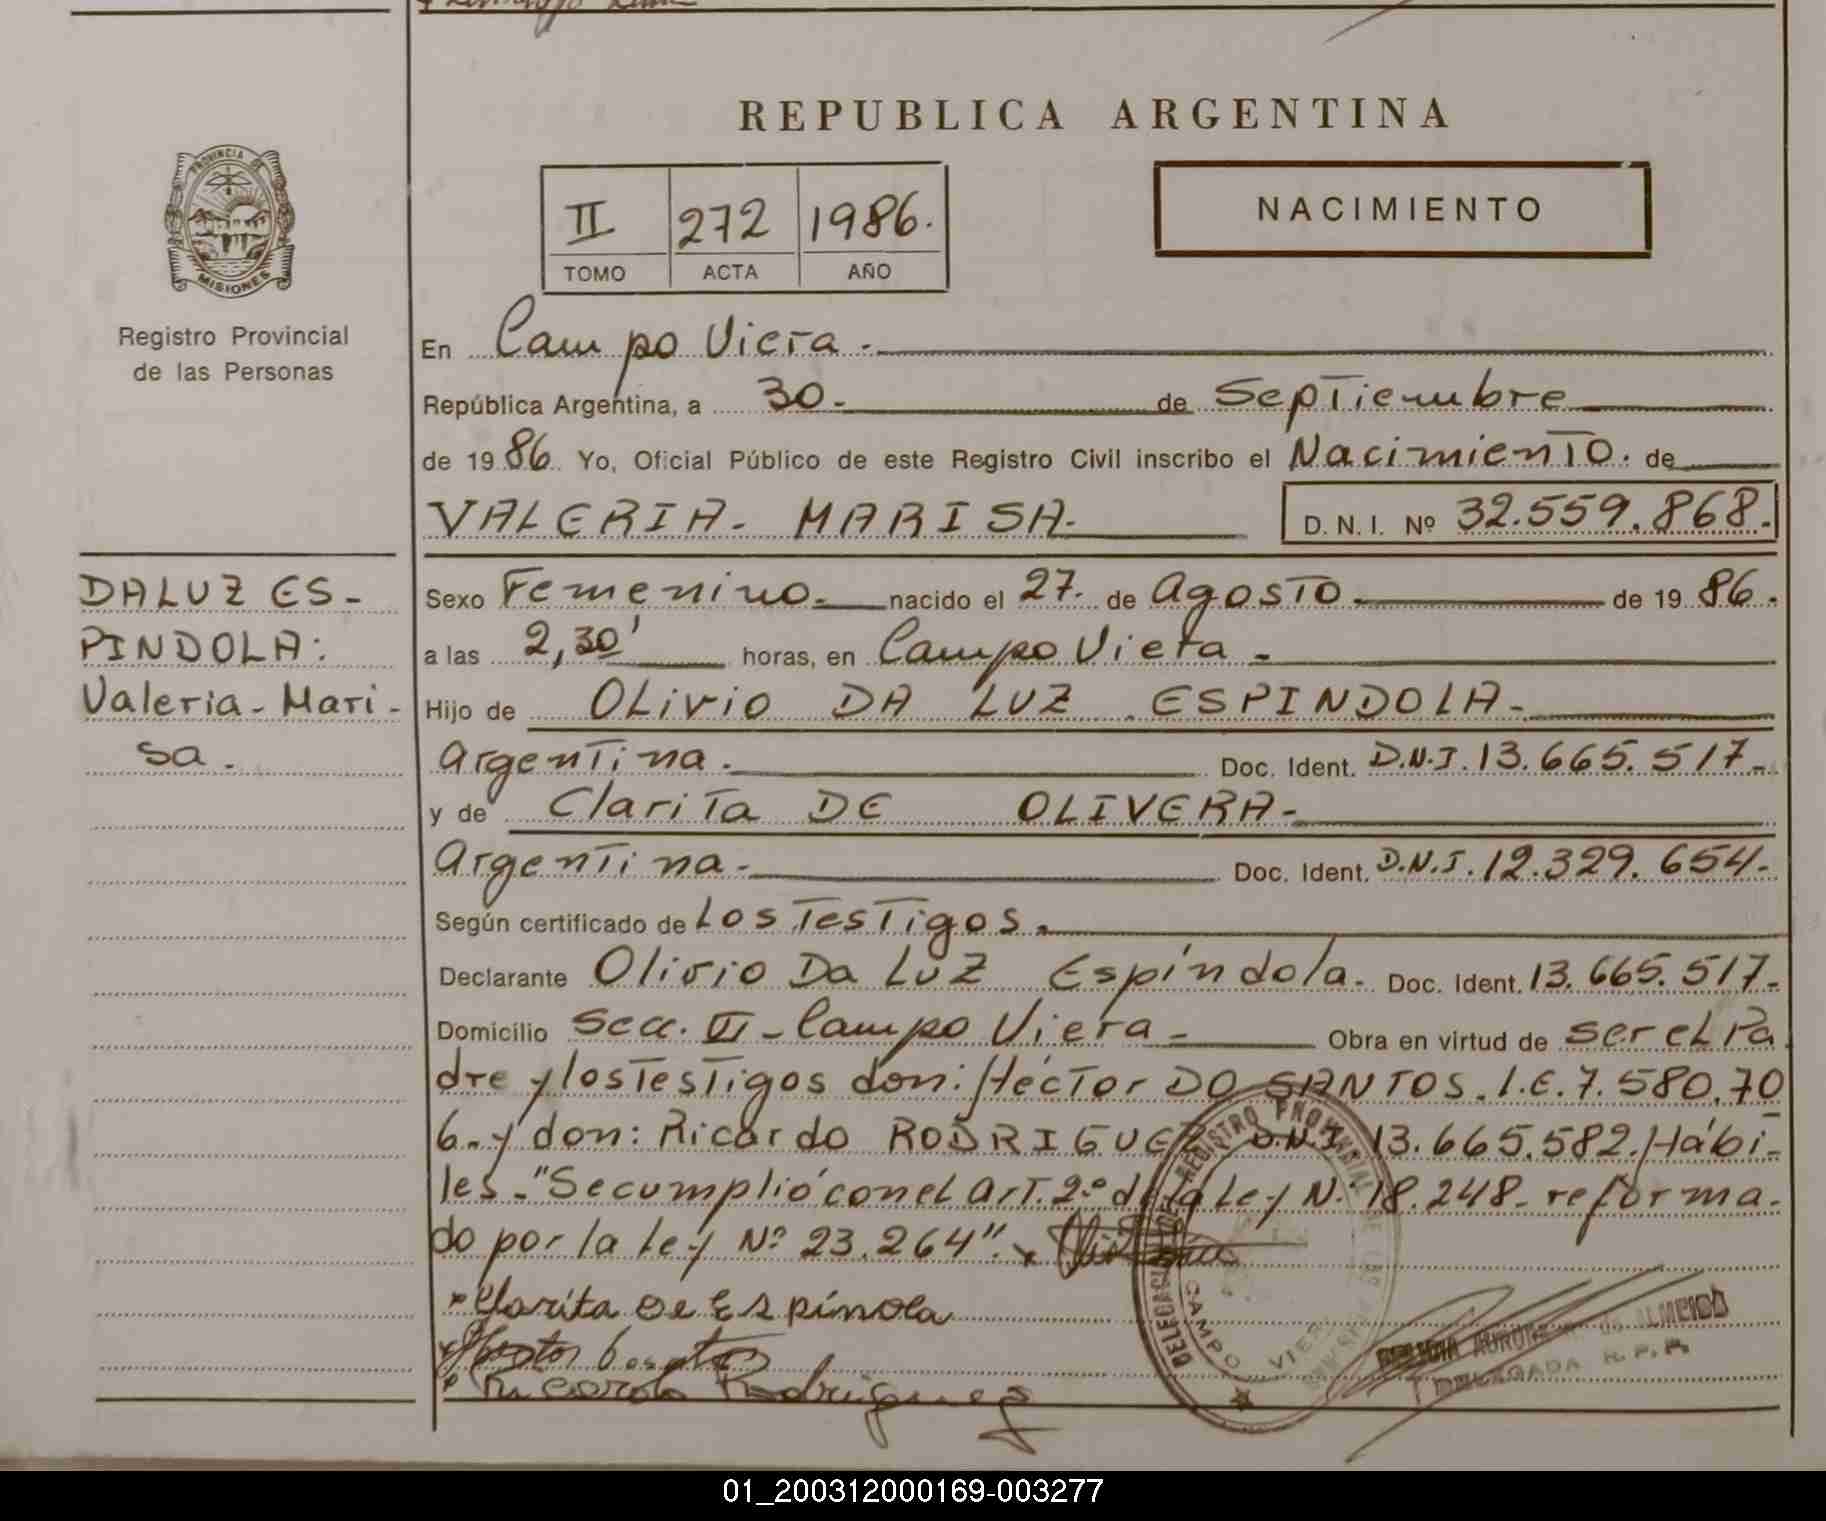 REPUBLICA ARGENTINA
PROVINCIA DE
MISIONES
Registro Provincial
de las Personas
II 272 1986.
TOMO ACTA AÑO
NACIMIENTO
En Campo Viera.
República Argentina, a 30. de Septiembre
de 1986. Yo, Oficial Público de este Registro Civil inscribo el Nacimiento. de
VALERIA. MARISA. D.N.I. Nº 32.559.868.
DALUZ ES-
PINDOLA:
Valeria. Mari-
sa.
Sexo Femenino. nacido el 27. de Agosto. de 1986.
a las 2,30' horas, en Campo Viera.
Hijo de OLivio DA LUZ ESPINDOLA.
Argentina. Doc. Ident. D.N.I. 13.665.517.
y de Clarita DE OLIVERA.
Argentina. Doc. Ident. D.N.I. 12.329.654.
Según certificado de Los Testigos.
Declarante Olivio Da Luz Espíndola. Doc. Ident. 13.665.517.
Domicilio Secc. VI - Campo Viera - Obra en virtud de ser el Pa
dre y los Testigos don: Héctor DO SANTOS. L.E. 7.580.70
6.. y don: Ricardo RODRIGUEZ D.N.I. 13.665.582. Hábi-
les. "Se cumplió con el Art. 2º de la Ley N. 18.248. reforma-
do por la Ley Nº 23.264".
Clarita De Espínola
Ricardo Rodriguez
DELEGACION REGISTRO PROVINCIAL DE LAS PERSONAS
CAMPO VIERA
DE ALMEIDA
DELEGADA R.P.P.
01_200312000169-003277